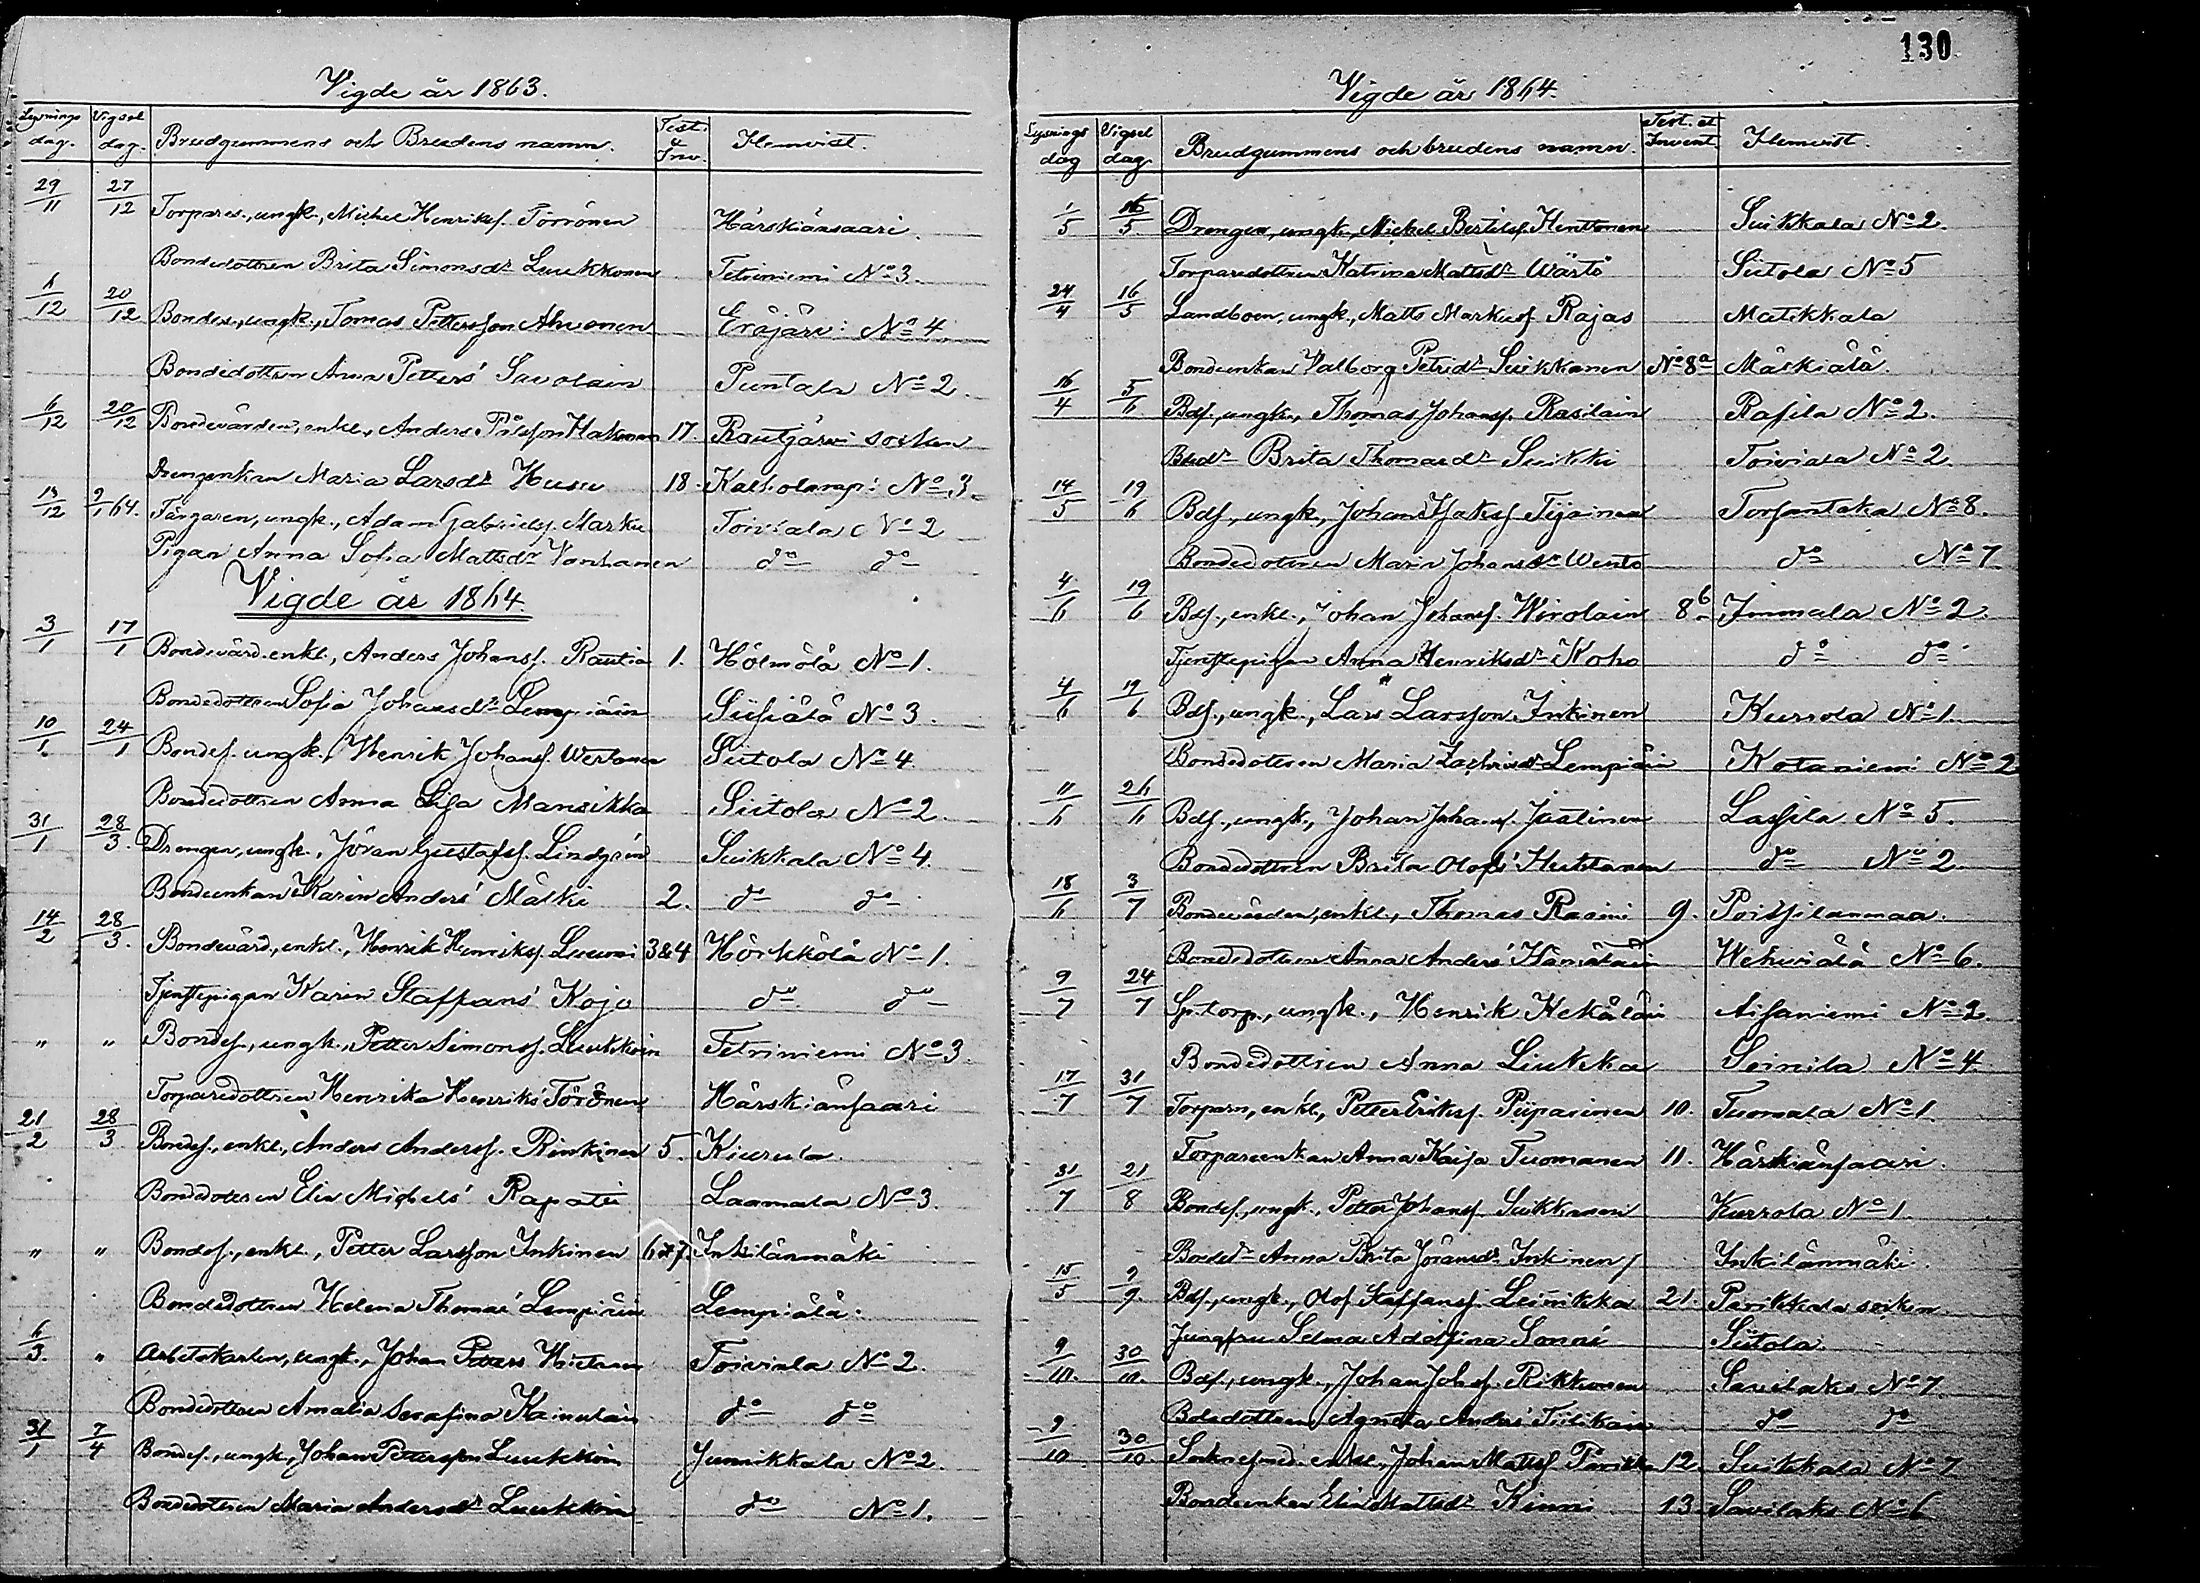 Vigde år 1863.
Lysnings dag. Vigsel dag. Brudgummens och Brudens namn. Test. & Inv. Hemvist.
29/11 27/12 Torpares., ungk., Michel Henrikss. Törrönen Härskiänsaari.
Bondedottren Brita Simonsdr Luukkonen Tetriniemi No 3.
6/12 20/12 Bondes., ungk., Tomas Petterson Ahvonen Eräjärvi No 4
Bondedottren Anna Petters' Savolain Puntala No 2.
6/12 20/12 Bondevärden, enkl., Anders Pålsson Hakonen 17. Rautjärvi socken
Drengenkan Maria Larsdr Husu 18. Kalholampi No 3.
13/12 9/1 64. Färgaren, ungk., Adam Gabrielss. Marku Toiviala No 2
Pigan Anna Sofia Mattsdr Vanhanen do do
Vigde år 1864
3/1 17/1 Bondevärd. enkl., Anders Johanss. Rautia 1. Hölmölä No 1.
Bondedottren Sofia Johansdr Lempiäin Siisiälä No 3.
10/1. 24/1 Bondes. ungk., Henrik Johanss. Wertanen Siitola No 4
Bondedottren Anna Lisa Mansikka Siitola No 2.
31/1 28/3. Drengen, ungk., Jöran Gustafss. Lindgrén Suikkala No 4.
Bondeenkan Karin Anders' Mälki 2. do do
14/2 28/3. Bondevärd., enkl., Henrik Henrikss. Luumi 3&4 Hörkkölä No 1.
Tjenstepigan Karin Staffans' Kojo do do
" " Bondes., ungk., Petter Simonss. Luukkoin Tetriniemi No 3
Torparedottren Henrika Henriks' Törönen Härskiänsaari
21/2 28/3 Bondes., enkl., Anders Anderss. Rinkinen 5. Kiurula.
Bondedottren Elin Michels' Rapatti Laamala No 3.
" " Bondes., enkl., Petter Larsson Inkinen 6&7. Inkilänmäki
Bondedottren Helena Thomas' Lempiäin Lempiälä.
6/3. " Arbetskarlen, ungk., Johan Petters Hietanen Toiviala No 2.
Bondedottren Amalia Serafina Kainulain do do
31/1 7/4 Bondes., ungk., Johan Pettersson Luukkoin Junnikkala No 2.
Bondedottren Maria Andersdr Luukkoin do No 1.
130
Vigde år 1864.
Lysnings dag Vigsel dag. Brudgummens och brudens namn. Test. et Invent. Hemvist.
1/5 16/5 Drengen, ungk., Michel Bertilss. Henttonen Suikkala No 2.
Torparedottren Katrina Mattsdr Wärtö Siitola No 5
24/4 16/5 Landboen, ungk., Matts Markuss. Rajas Matikkala
Bondeenkan Valborg Petridr Suikkanen No 8a Mäskiälä.
16/4 5/6 Bds., ungk., Thomas Johanss. Rasilain Rasila No 2.
Bdedr Brita Thomasdr Suikki Toiviala No 2
14/5 19/6 Bds., ungk., Johan Isakss. Tijainen Torsantaka No 8.
Bondedottren Maria Johansdr Wento do No 7
4/6 19/6 Bds., enkl., Johan Johanss. Wirolain 8b Immala No 2.
Tjenstepigan Anna Henriksdr Koho do do
4/6 19/6 Bds., ungk., Lars Larsson Inkinen Kurrola No 1.
Bondedottren Maria Zachrisdr Lempiäin Kotaniemi No 2
11/6 26/6 Bds., ungk., Johan Johanss. Juutinen Lassila No 5.
Bondedottren Brita Olofs' Huttanen do No 2
18/6 3/7 Bondevärden, enkl., Thomas Raami 9. Poitsilanmaa.
Bondedottren Anna Anders' Hämäläin Wehviälä No 6.
9/7 24/7 Sp. torp., ungk., Henrik Hekäläin Äisäniemi No 2.
Bondedottren Anna Liukka Soinila No 4
17/7 31/7 Torparn, enkl., Petter Erikss. Piiparinen 10. Tuomala No 1.
Torpareenkan Anna Kaisa Tuomanen 11. Härskiänsaari.
31/7 21/8 Bondes., ungk., Petter Johanss. Suikkanen Kurrola No 1.
Bondedr Anna Brita Jöransdr Inkinen Inkilänmäki.
15/5 9/9. Bds., ungk., Olof Staffanss. Leinikka 21. Parikkala socken.
Jungfru Selma Adolfina Sonni Siitola.
9/10. 30/10. Bds., ungk., Johan Johss. Rikkonen Savilaks No 7
Bdedottren Agneta Anders' Tiilikain do do
9/10 30/10. Sockensmed. enkl., Johan Mattss. Parikka 12. Suikkala No 7
Bondeenkan Elin Mattsdr Kinni 13. Savilaks No 6